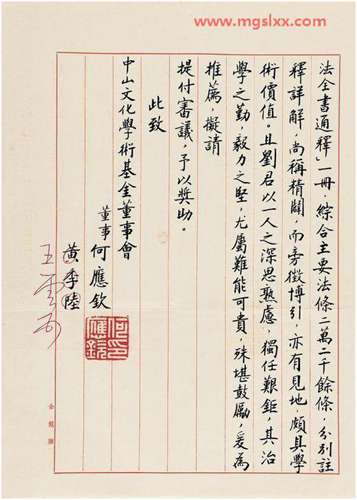 www.mgslxx.com
法全書通釋」一冊，綜合主要法條二萬二千餘條，分別註
釋詳解，尚稱精闢，而旁徵博引，亦有見地，頗具學
術價值。且劉君以一人之深思熟慮，獨任艱鉅，其治
學之勤，毅力之堅，尤屬難能可貴，殊堪鼓勵，爰為
推薦，擬請
提付審議，予以奬助。
此致
中山文化學術基金董事會
董事 何應欽
黄季陸
王雲五
何應欽印